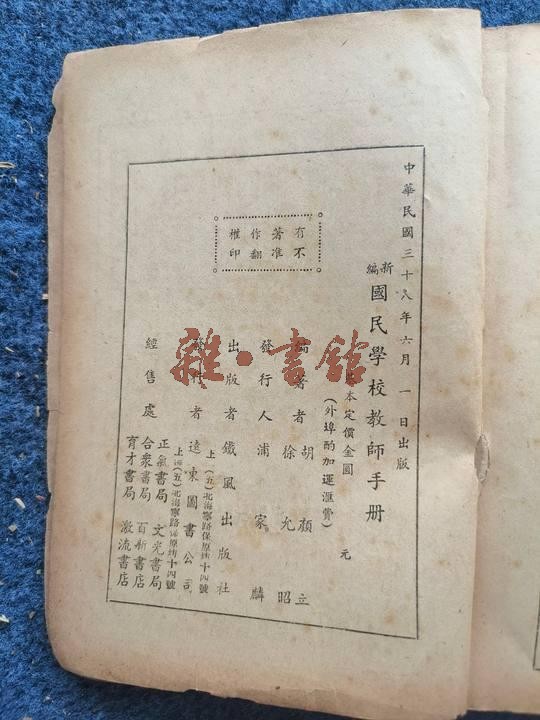 中華民國三十八年六月一日出版
新編國民學校教師手册
本定價金圓 元
(外埠酌加運滙費)
有著作權
不准翻印
編著者 胡顏立
徐允昭
發行人 浦家麟
出版者 鐵風出版社
上海(五)北海寧路保原街十四號
發行者 遠東圖書公司
上海(五)北海寧路保原街十四號
經售處
正氣書局 文光書局
合衆書局 百新書店
育才書局 激流書店
雜·書館